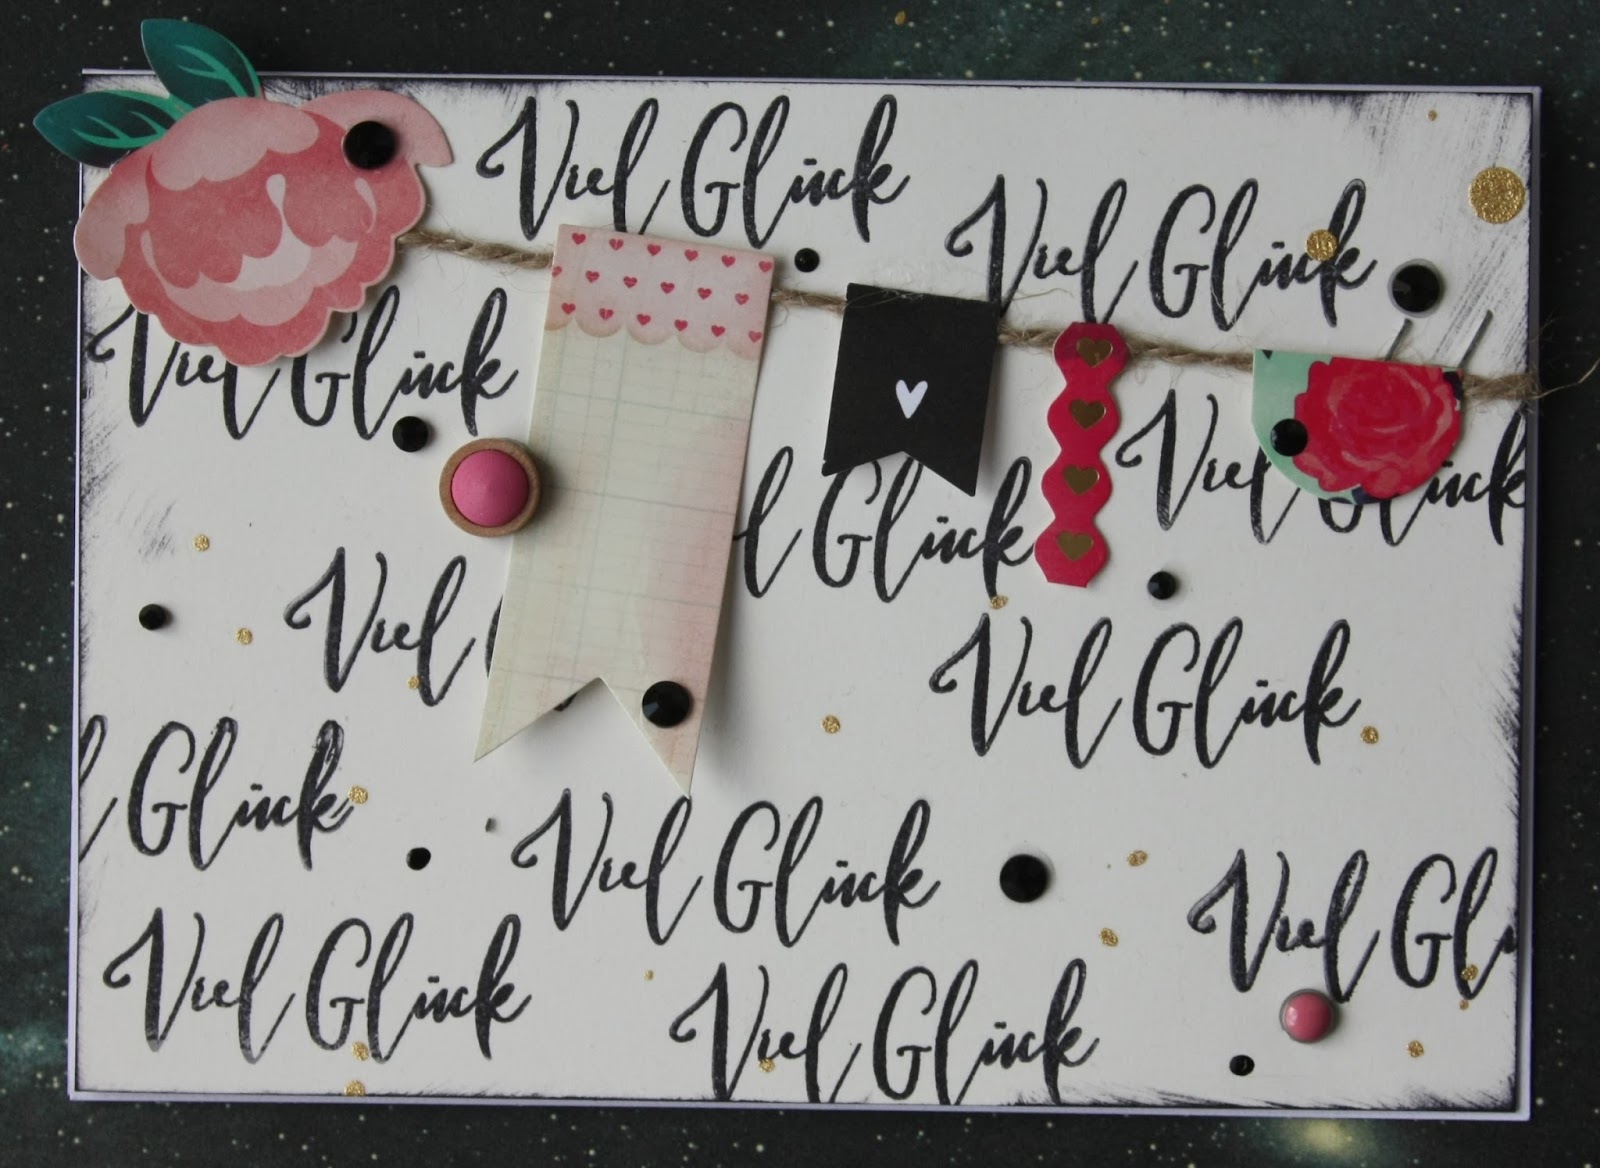 Viel Glück
Viel Glück
Viel Glück
Viel Glück
l Glück
Viel
Viel Glück
l Glück
Viel Glück
Viel Glü
Viel Glück
Viel Glück